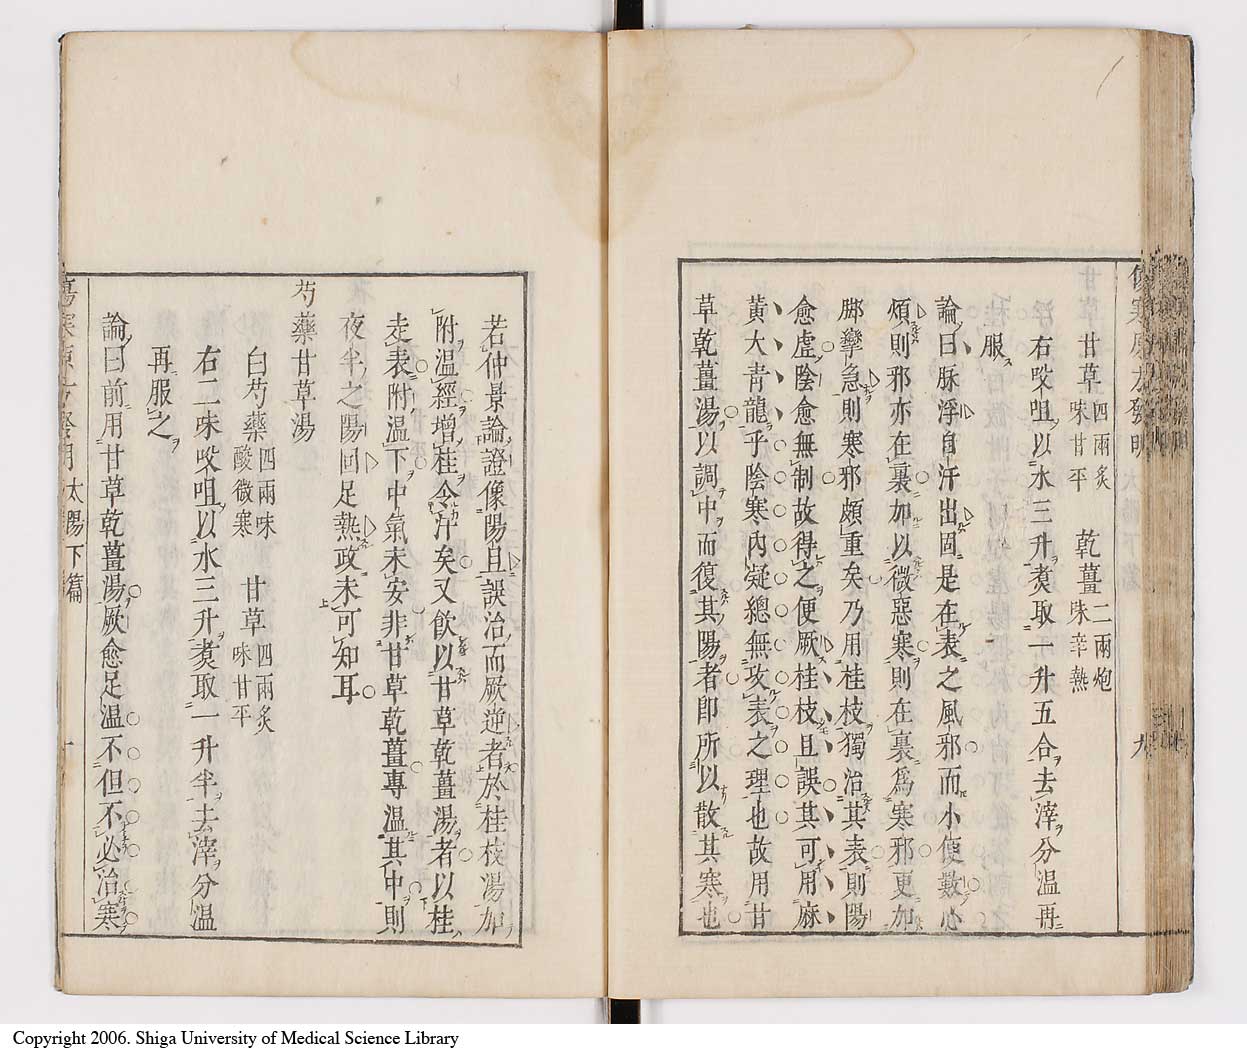 甘草 四兩炙 味甘平 乾薑 二兩炮 味辛熱
右㕮咀以水三升煑取一升五合去滓分温再
服
論曰脈浮自汗出固是在表之風邪而小便數心
煩則邪亦在裏加以微惡寒則在裏爲寒邪更加
脚攣急則寒邪頗重矣乃用桂枝獨治其表則陽
愈虛陰愈無制故得之便厥桂枝且誤其可用麻
黃大青龍乎陰寒內凝總無攻表之理也故用甘
草乾薑湯以調中而復其陽者卽所以散其寒也
若仲景論證像陽旦誤治而厥逆者於桂枝湯加
附温經增桂令汗矣又飲以甘草乾薑湯者以桂
走表附温下中氣未安非甘草乾薑專温其中則
夜半之陽回足熱政未可知耳
芍藥甘草湯
白芍藥 四兩味 酸微寒 甘草 四兩炙 味甘平
右二味㕮咀以水三升煑取一升半去滓分温
再服之
論曰前用甘草乾薑湯厥愈足温不但不必治寒
太陽下篇
Copyright 2006. Shiga University of Medical Science Library